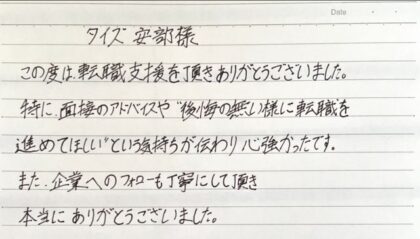 Date
タイズ 安部様
この度は、転職支援を頂きありがとうございました。
特に、面接のアドバイスや"後悔の無い様に転職を
進めてほしい"という気持ちが伝わり心強かったです。
また、企業へのフォローも丁寧にして頂き
本当に ありがとうございました。